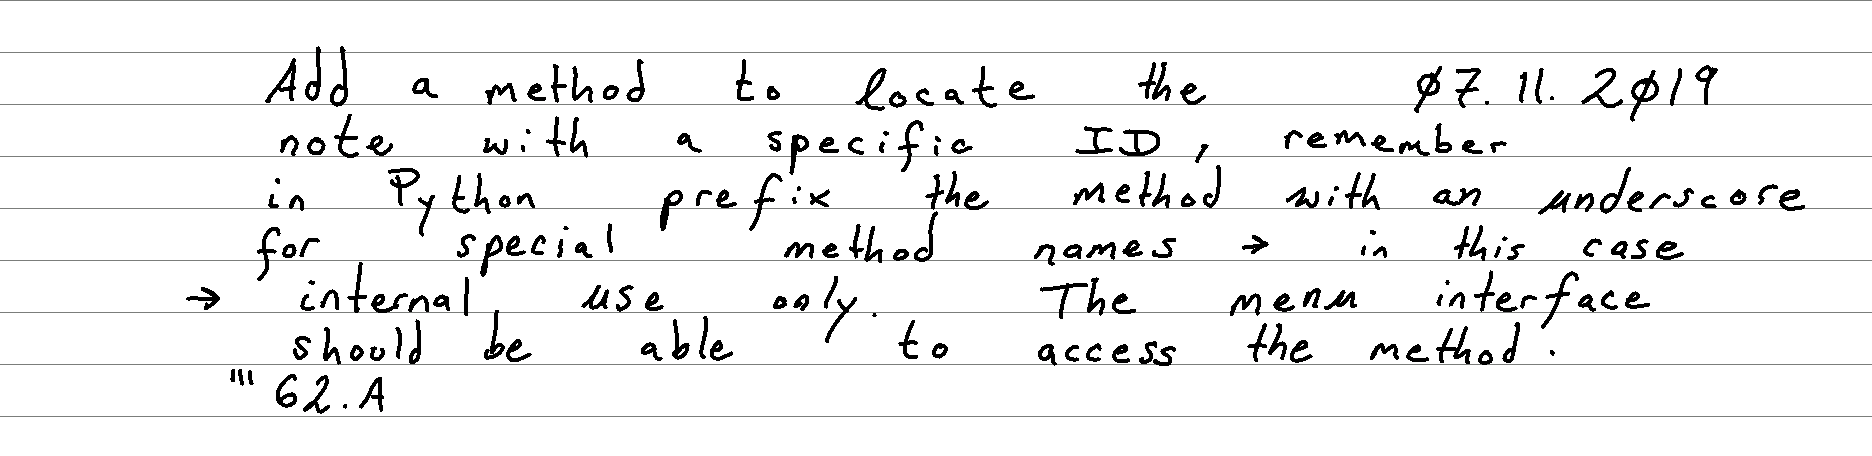 Add a method to locate the ø7.11.2ø19
note with a specific ID, remember
in Python prefix the method with an underscore
for special method names → in this case
→ internal use only. The menu interface
should be able to access the method.
""' 62.A